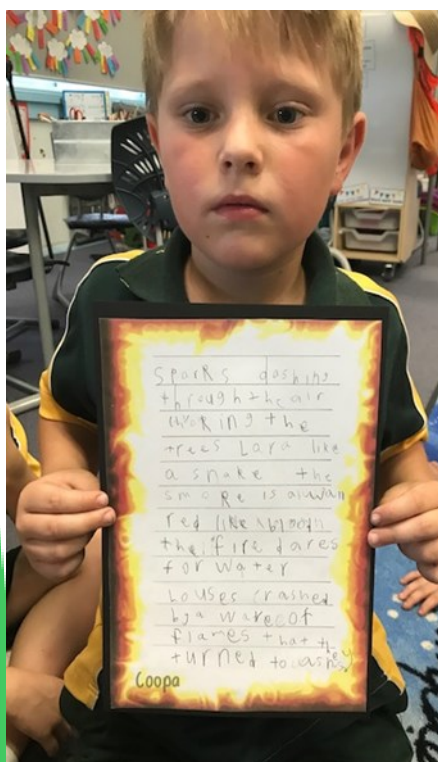 sparks dashing
through the air
the
trees Lara like
a snake the
smoke is
red like
the fire dares
for water
houses crashed
by a wave of
flames that the
turned to ashes
Coopa